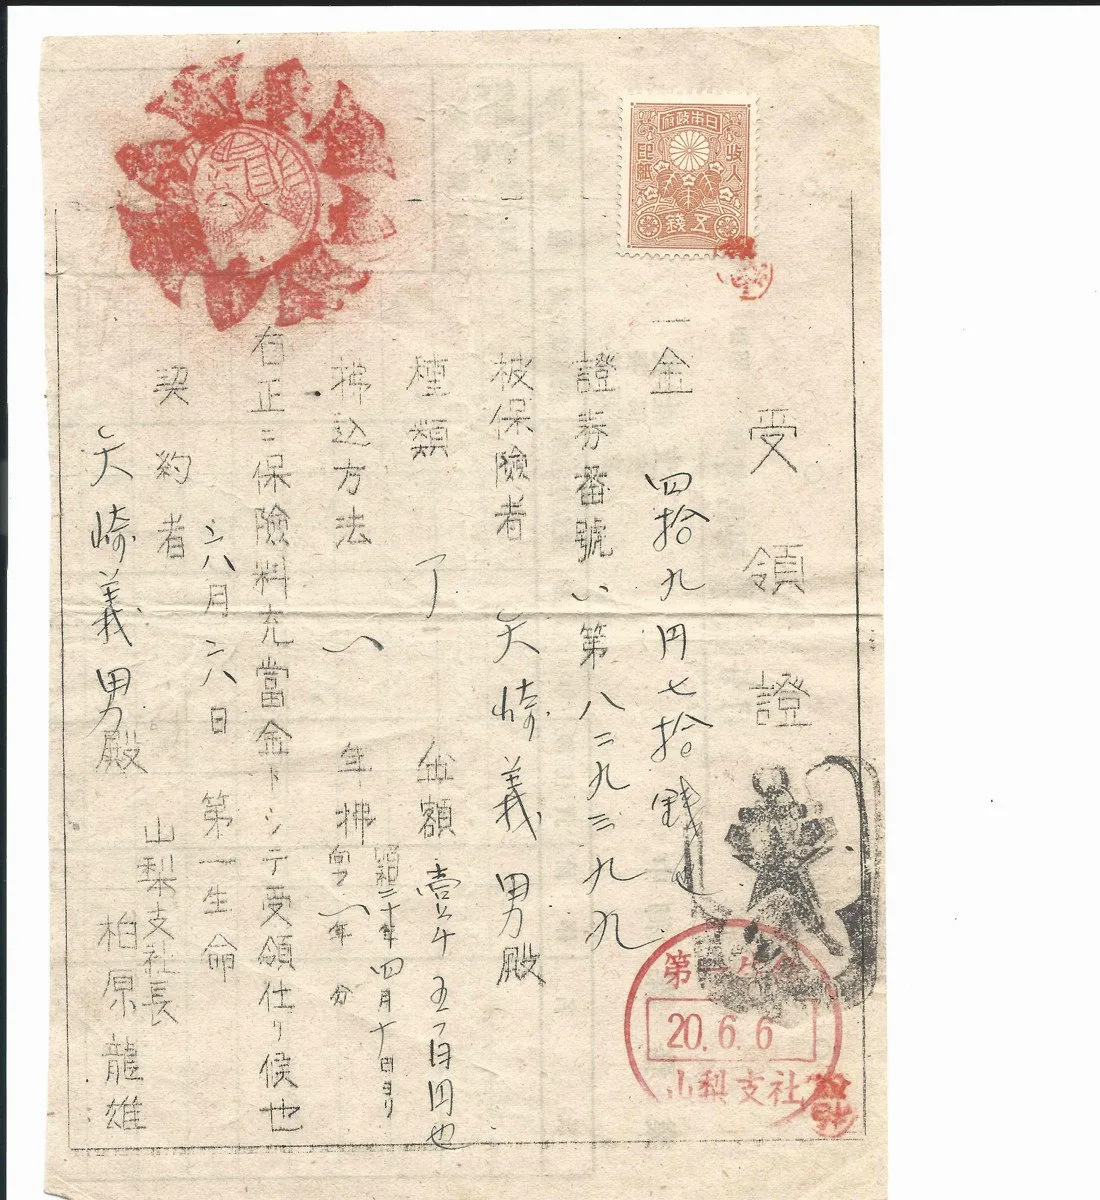 日本政府
収入
印紙
五錢
受領證
一金 四拾九円七拾錢也
證券番號 い第八二九三九九
被保險者 矢崎義男殿
種類 了 金額 壹千五百円也
拂込方法 年拂 昭和二十年四月十日ヨリ
向フ一年分
右正ニ保險料充當金トシテ受領仕リ候也
六月六日 第一生命
契約者 山梨支社長
矢崎義男殿 柏原龍雄
第一生命
20.6.6
山梨支社